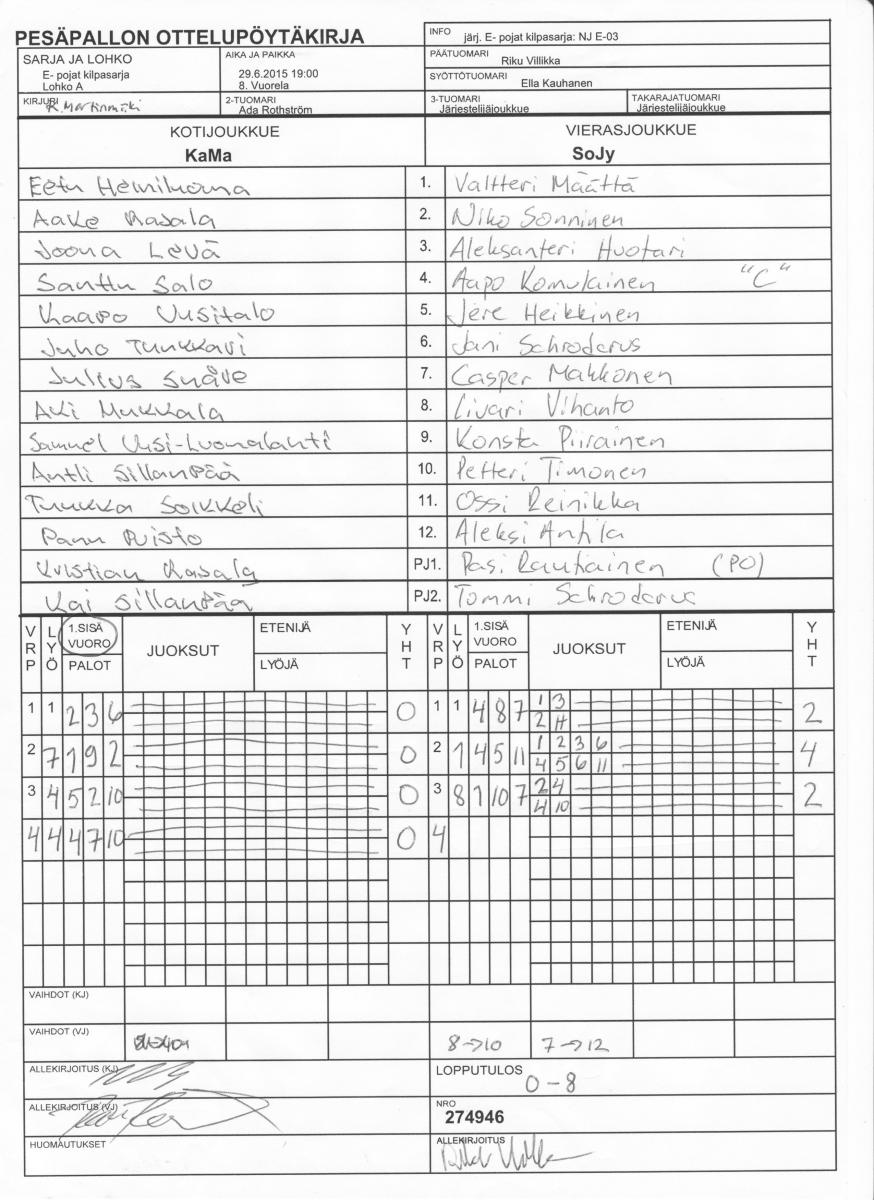 PESÄPALLON OTTELUPÖYTÄKIRJA
INFO järj. E- pojat kilpasarja: NJ E-03
SARJA JA LOHKO
E- pojat kilpasarja
Lohko A
AIKA JA PAIKKA
29.6.2015 19:00
8. Vuorela
PÄÄTUOMARI Riku Villikka
SYÖTTÖTUOMARI Ella Kauhanen
KIRJURI K. Martinmäki
2-TUOMARI Ada Rothström
3-TUOMARI Järjestelijäjoukkue
TAKARAJATUOMARI Järjestelijäjoukkue
KOTIJOUKKUE VIERASJOUKKUE
KaMa SoJy
Eetu Hemiluoma 1. Valtteri Määttä
Aake Kasala 2. Niko Sonninen
Joona Levä 3. Aleksanteri Huotari
Santtu Salo 4. Aapo Komulainen "C"
Kaapo Uusitalo 5. Jere Heikkinen
Juho Tuukkari 6. Jani Schroderus
Julius Snåre 7. Casper Makkonen
Aki Mukkala 8. Iivari Vihanto
Samuel Uusi-Luomalahti 9. Konsta Piirainen
Antti Sillanpää 10. Petteri Timonen
Tuukka Soikkeli 11. Ossi Reinikka
Panu Puisto 12. Aleksi Antila
Kristian Kasala PJ1. Pasi Rautiainen (PO)
Kai Sillanpää PJ2. Tommi Schroderus
VRP LYÖ 1.SISÄ VUORO PALOT JUOKSUT ETENIJÄ LYÖJÄ YHT VRP LYÖ 1.SISÄ VUORO PALOT JUOKSUT ETENIJÄ LYÖJÄ YHT
1 1 2 3 6 0 1 1 4 8 7 1 3 2
2 4
2 7 1 9 2 0 2 1 4 5 11 1 2 3 6 4
4 5 6 11
3 4 5 2 10 0 3 8 1 10 7 2 4 2
4 10
4 4 4 7 10 0 4
VAIHDOT (KJ)
VAIHDOT (VJ) 8→10 7→12
ALLEKIRJOITUS (KJ)
LOPPUTULOS 0-8
ALLEKIRJOITUS (VJ)
NRO
274946
HUOMAUTUKSET
ALLEKIRJOITUS